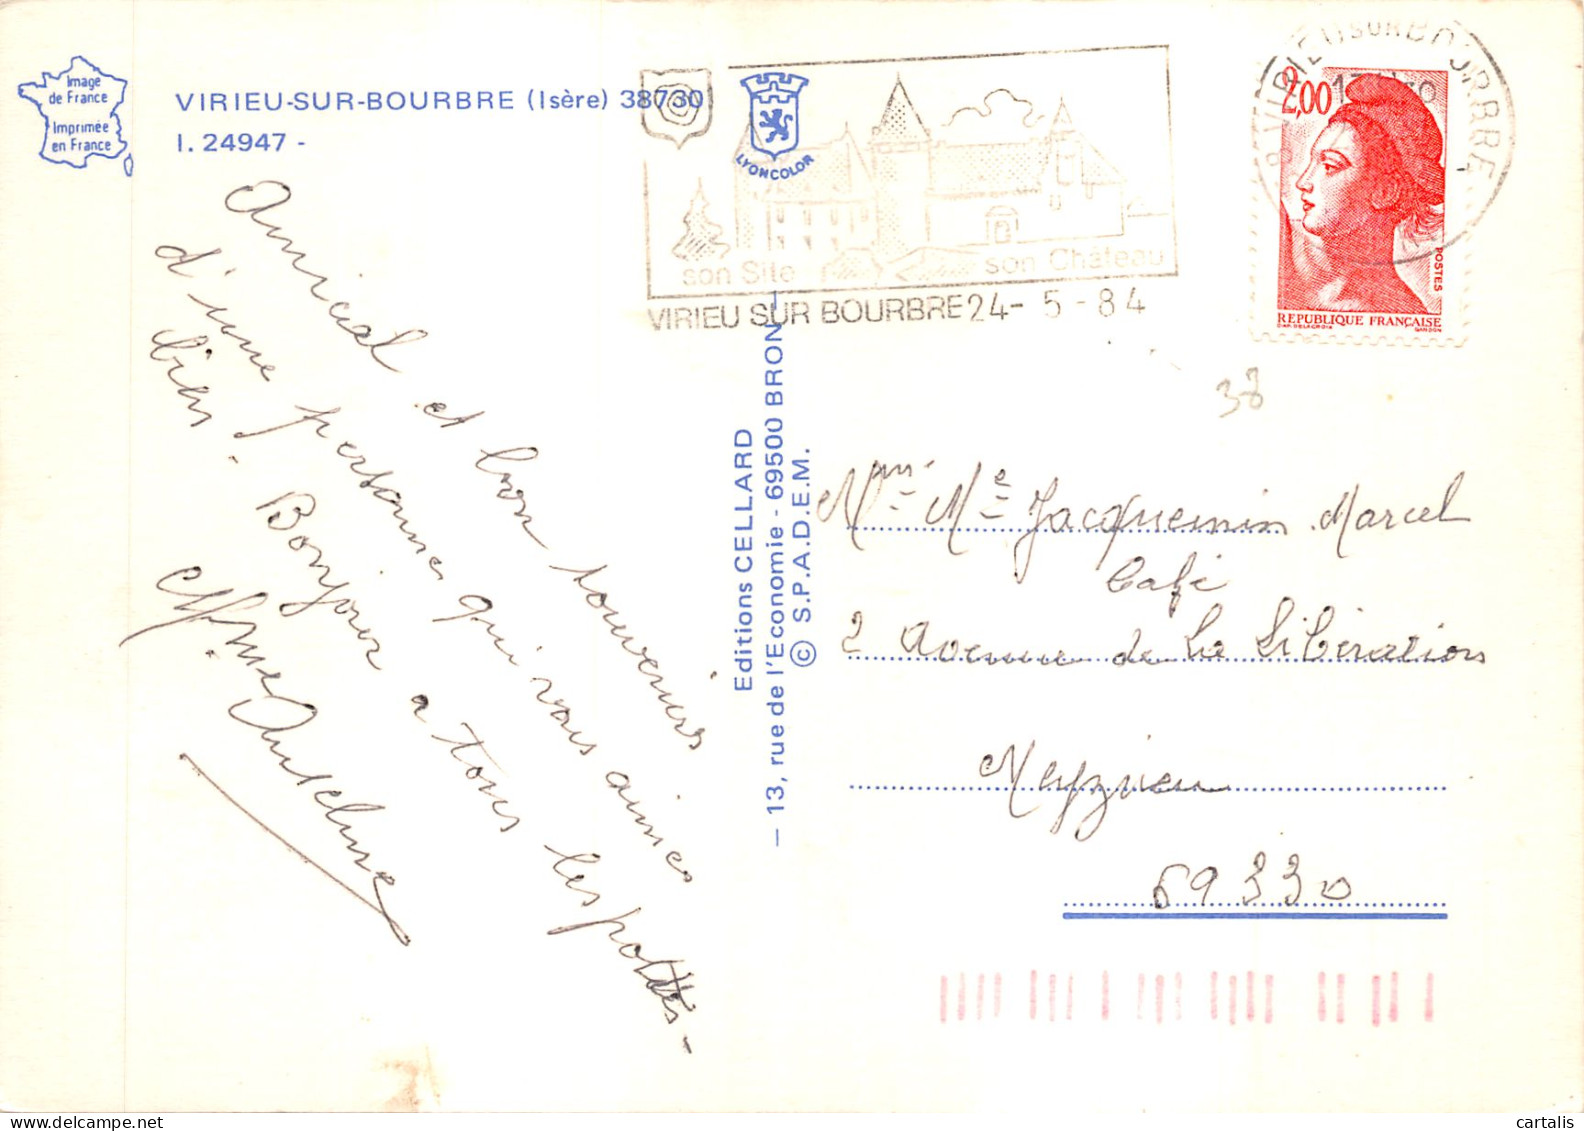 Image
de France
Imprimée
en France
VIRIEU-SUR-BOURBRE (Isère) 38730
I. 24947 -
LYONCOLOR
son Site
son Château
VIRIEU SUR BOURBRE 24- 5 - 84
VIRIEU SUR BOURBRE
2,00
POSTES
REPUBLIQUE FRANÇAISE
GANDON
38
Amical et bon souvenirs
d'une personne qui vous aimes
bien. Bonjour a tous les
potes -
Mme
Editions CELLARD
— 13, rue de l'Economie - 69500 BRON —
© S.P.A.D.E.M.
Mr Me Jacquemin Marcel
Café
2 Avenue de La Libération
Meyzieu
69330
cartalis